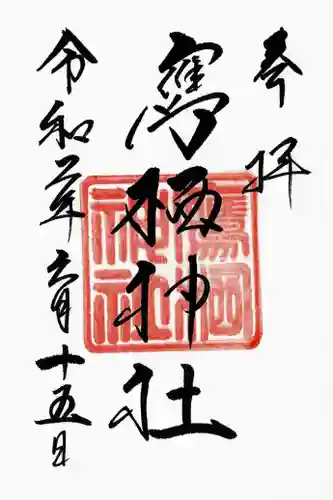 奉拝
鷹栖神社
令和年六月十五日
鷹栖
神社